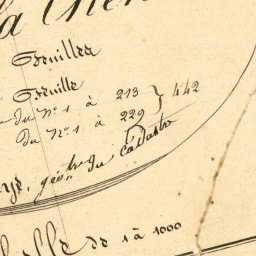 la
Feuilles
Feuille
du N° 1 à 213 } 442
Du N° 1 à 229
géom. du Cadastre
de 1 à 1000